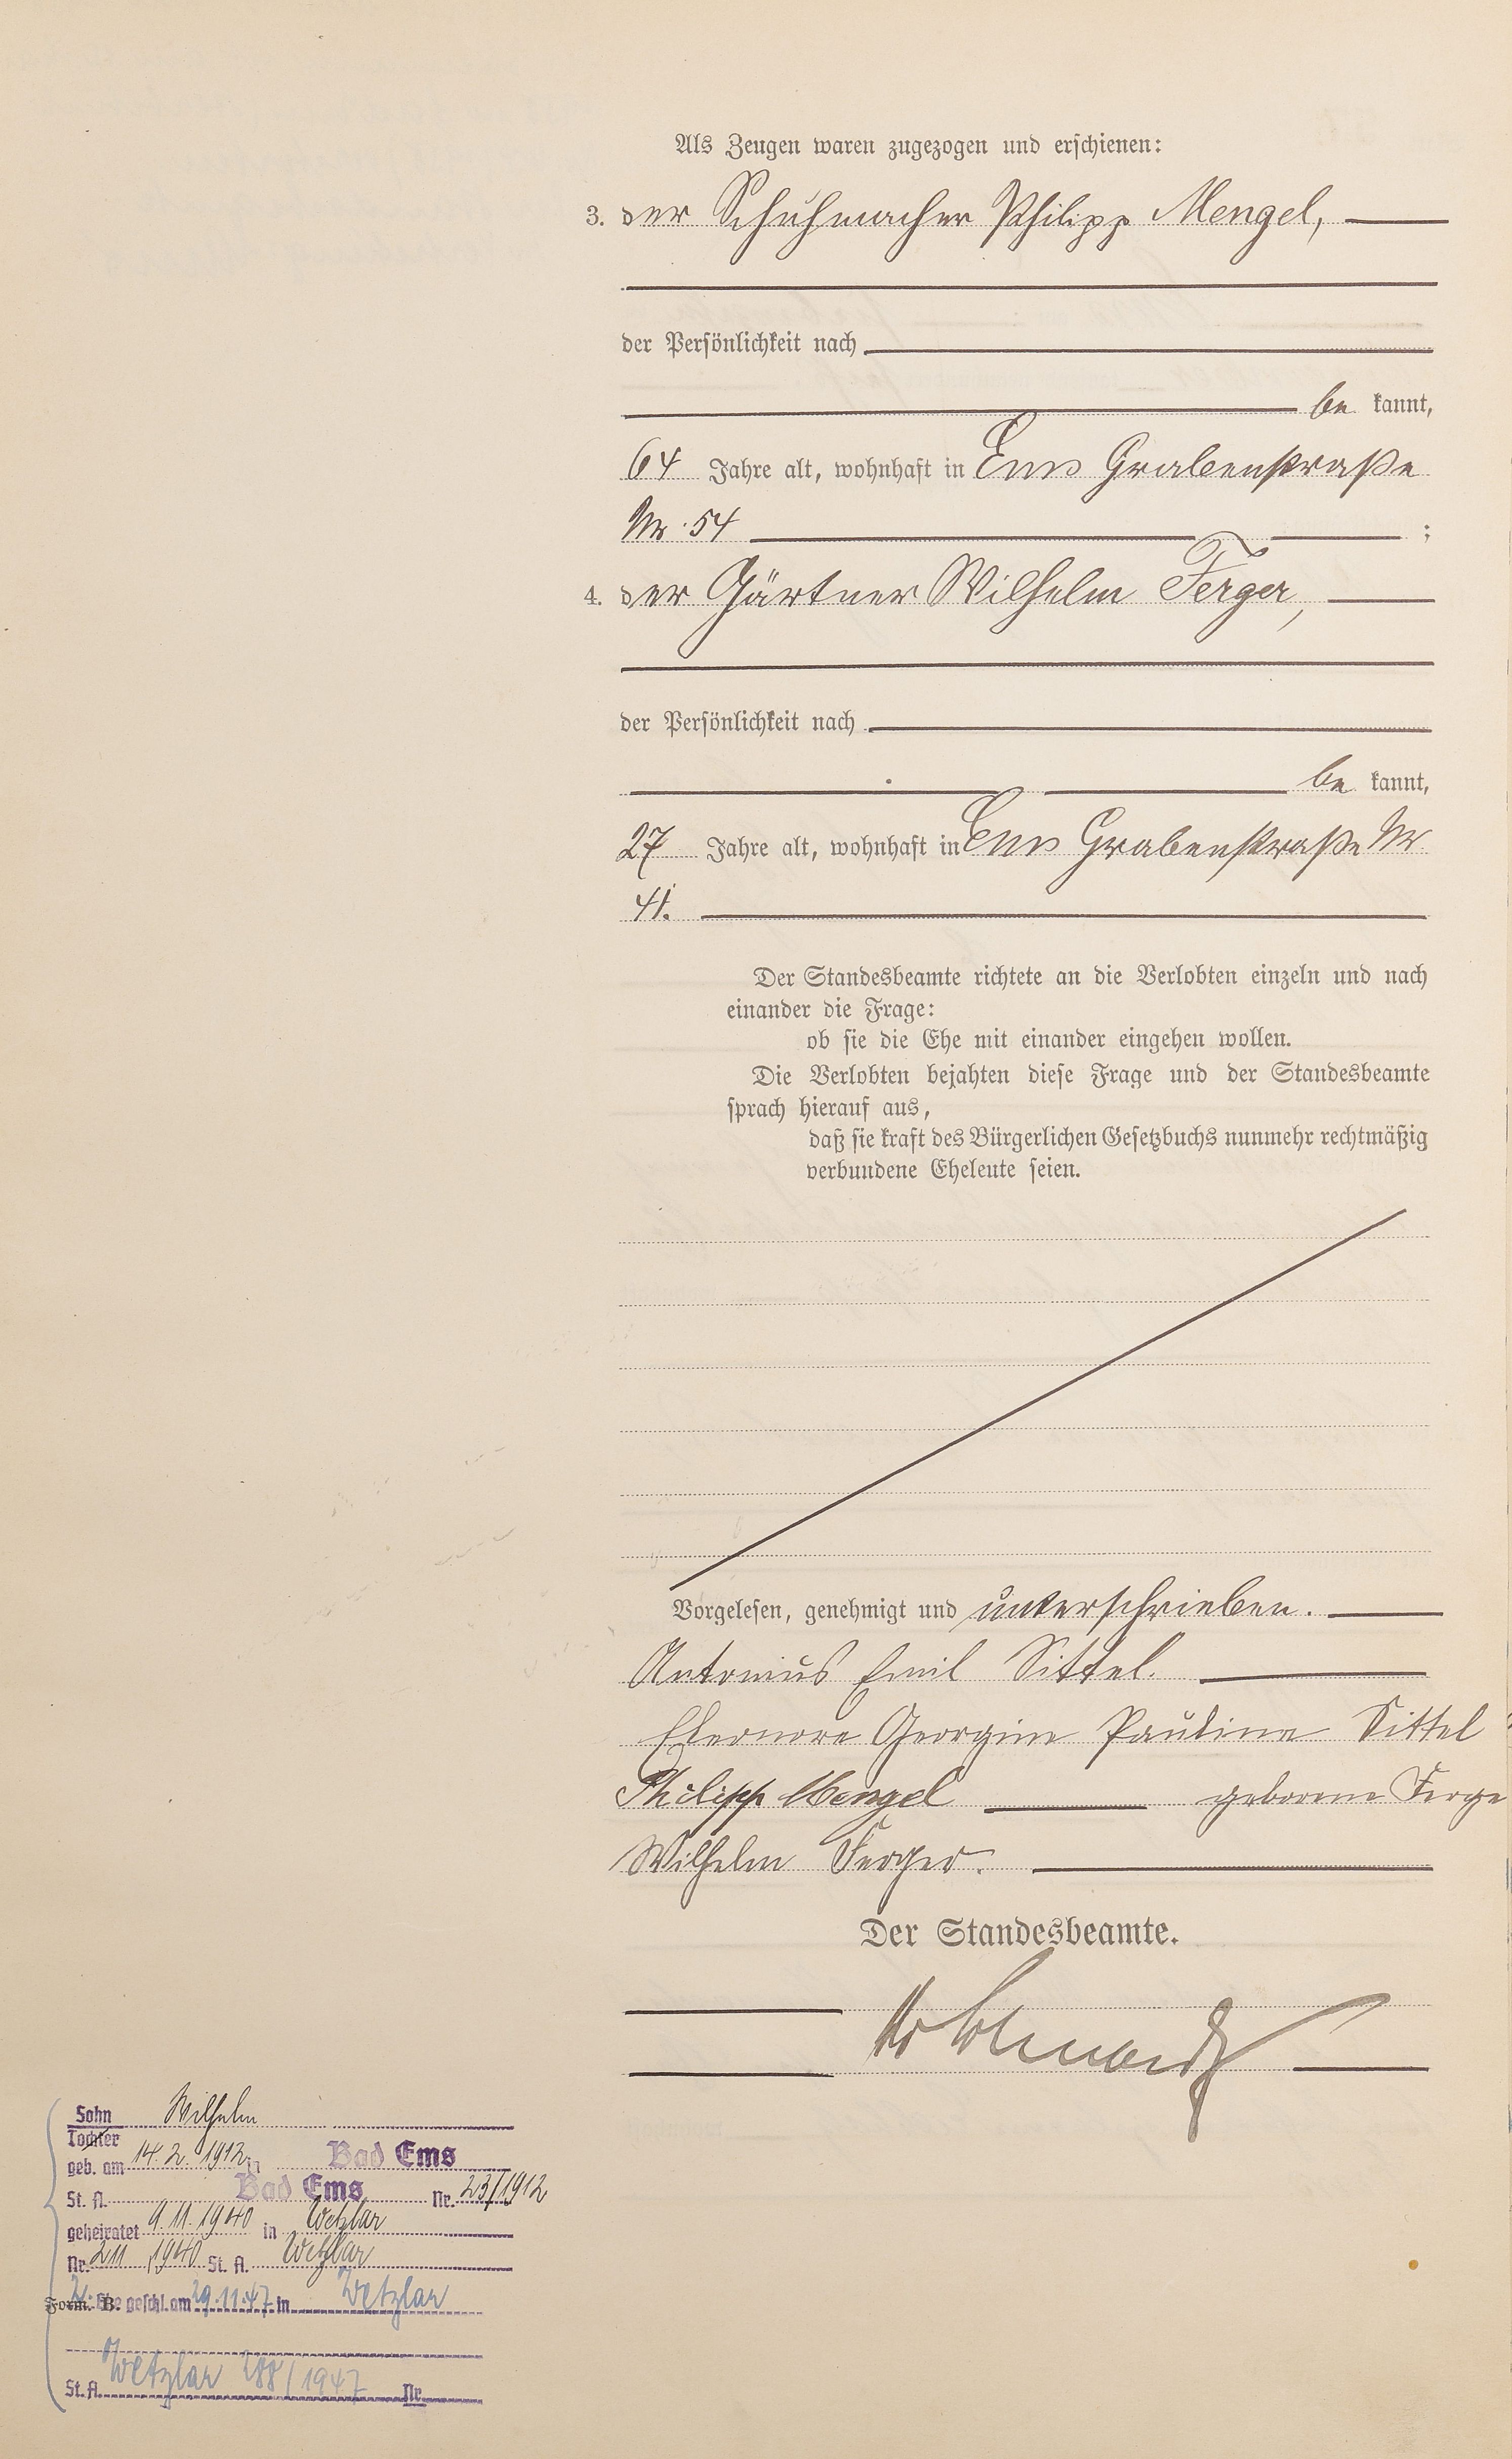 Als Zeugen waren zugezogen und erschienen:
3. der Schuhmacher Philipp Mengel,
der Persönlichkeit nach
be kannt,
64 Jahre alt, wohnhaft in Ems Grabenstraße
Nr. 54 ;
4. der Gärtner Wilhelm Ferger,
der Persönlichkeit nach
be kannt,
27 Jahre alt, wohnhaft in Ems Grabenstraße Nr
41.
Der Standesbeamte richtete an die Verlobten einzeln und nach
einander die Frage:
ob sie die Ehe mit einander eingehen wollen.
Die Verlobten bejahten diese Frage und der Standesbeamte
sprach hierauf aus,
daß sie kraft des Bürgerlichen Gesetzbuchs nunmehr rechtmäßig
verbundene Eheleute seien.
Vorgelesen, genehmigt und unterschrieben.
Antonius Emil Sittel.
Eleonore Georgine Pauline Sittel
Philipp Mengel geborene Ferge
Wilhelm Ferger.
Der Standesbeamte.
Sohn Wilhelm
Tochter
geb. am 14. 2. 1912 in Bad Ems
St. A. Bad Ems Nr. 23/1912
geheiratet 9. 11. 1940 in Wetzlar
Nr. 211 1940 St. A. Wetzlar
Form. B. 2. Ehe geschl. am 29.11.47 in Wetzlar
St. A. Wetzlar 288/1947 Nr.